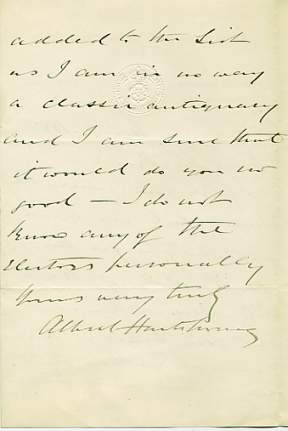 added to the list
as I am in no way
a classic antiquary
and I am sure that
it would do you no
good – I do not
know any of the
Electors personally
Yours very truly
Albert Hartshorne